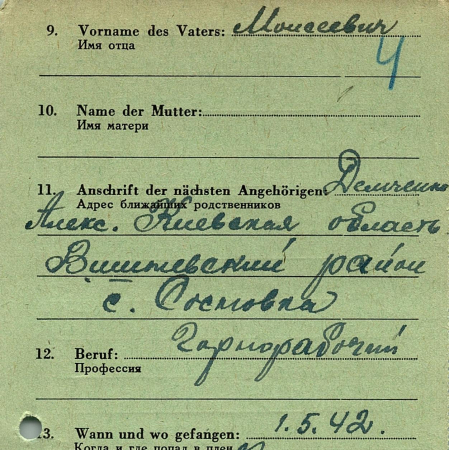 9. Vorname des Vaters: Моисеевич
Имя отца
4
10. Name der Mutter:
Имя матери
11. Anschrift der nächsten Angehörigen: Демченко
Адрес ближайших родственников
Алекс. Киевская область
район
с. Сосновка
12. Beruf: Горнорабочий
Профессия
13. Wann und wo gefangen: 1.5.42.
Когда и где попал в плен